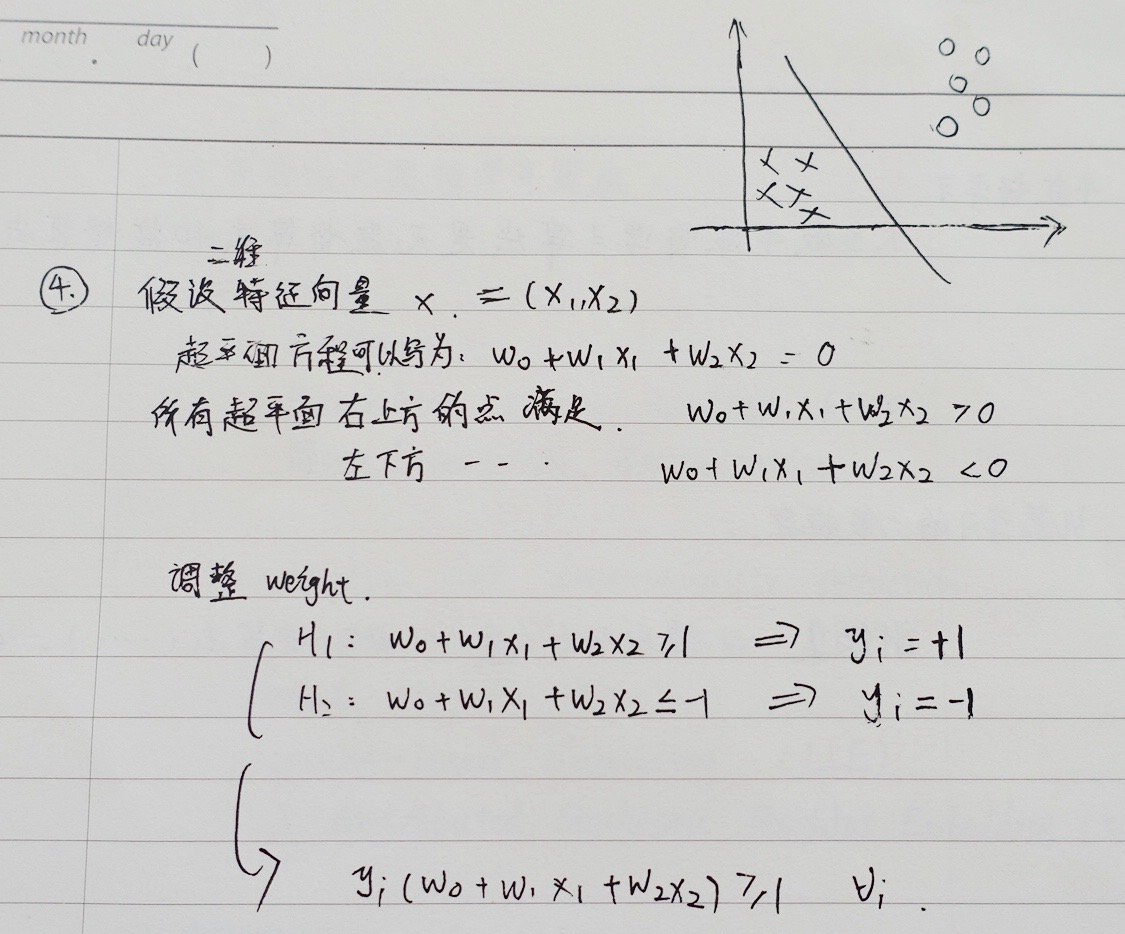 month day ( )
二维
④. 假设特征向量 x = (x₁,x₂)
超平面方程可以写为: w₀+w₁x₁+w₂x₂ = 0
所有超平面右上方的点满足. w₀+w₁x₁+w₂x₂ >0
左下方 -- · w₀+w₁x₁+w₂x₂ <0
调整 weight.
H₁: w₀+w₁x₁+w₂x₂ ≥1 ⇒ yᵢ=+1
H₂: w₀+w₁x₁+w₂x₂ ≤-1 ⇒ yᵢ=-1
yᵢ(w₀+w₁x₁+w₂x₂) ≥1 ∀ᵢ.